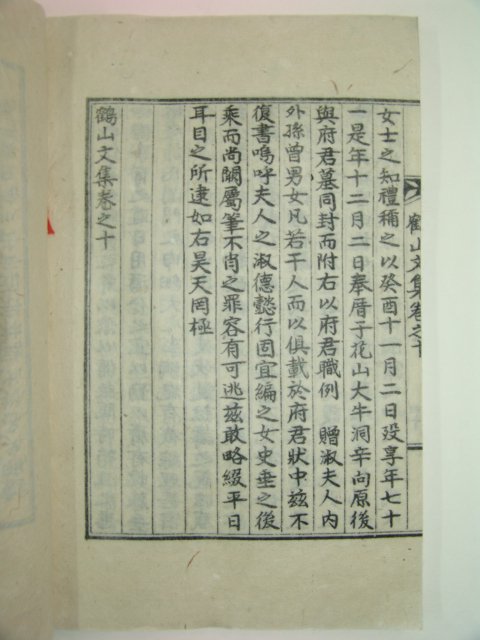 女士之知禮稱之以癸酉十一月二日歿享年七十
一是年十二月二日奉厝于花山大牛洞辛向原後
與府君墓同封而附右以府君職例 贈淑夫人内
外孫曾男女凡若干人而以俱載於府君狀中玆不
復書嗚呼夫人之淑德懿行固宜編之女史垂之後
乘而尚闕屬筆不肖之罪容有可逃玆敢略綴平日
耳目之所逮如右昊天罔極
鶴山文集卷之十
鶴山文集卷之十